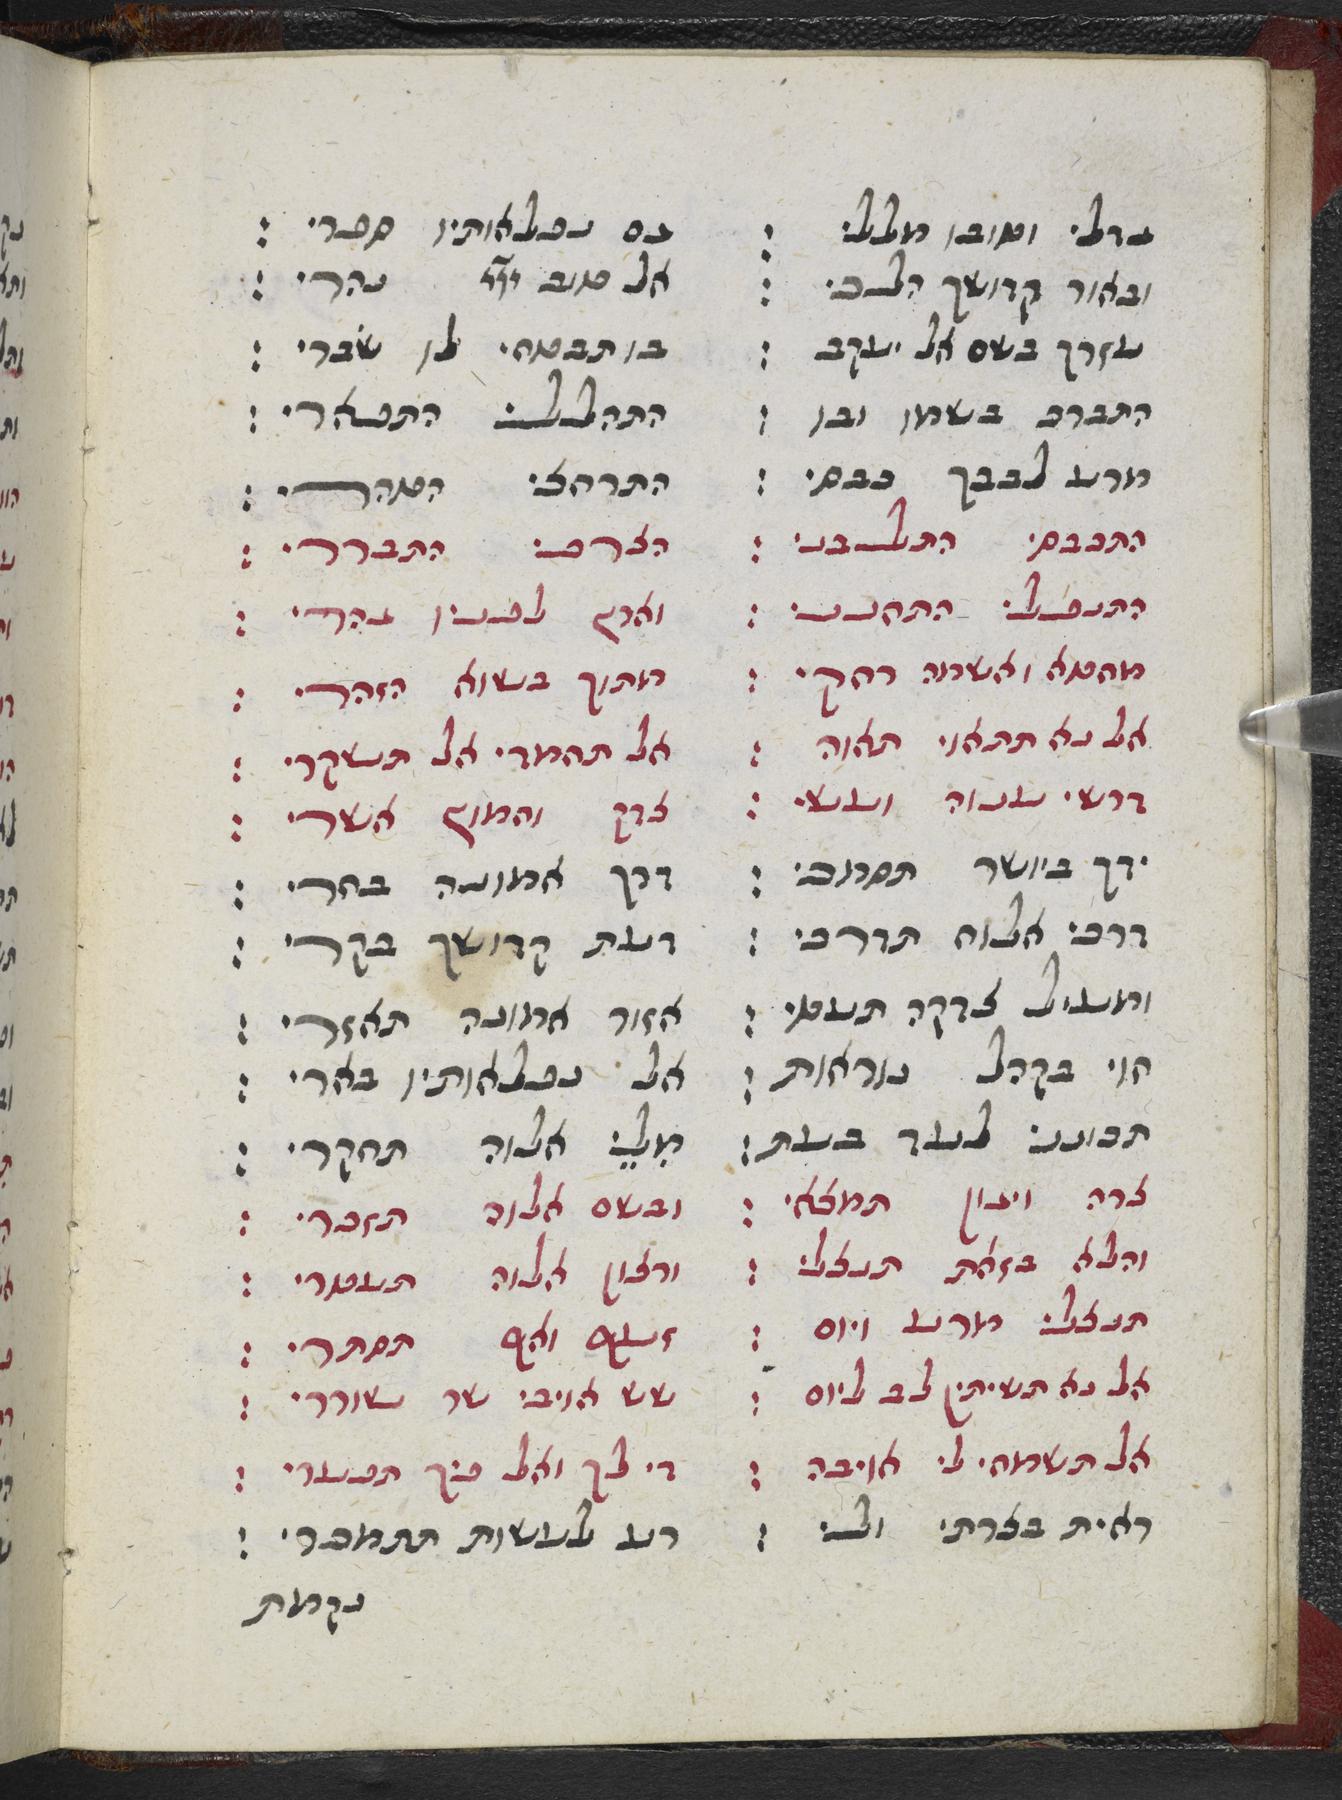 גדלי וטובו מללי : גם נפלאותיו ספרי :
ובאור קדושך הלכי : אל טוב ייי נהרי :
עזרך בשם אל יעקב : בו תבטחי לו שברי :
התברכי בשמו ובו : התהללי התפארי :
מרע לבבך כבסי : התרחצי הטהרי :
התכבסי התלבני : הצרפי התבררי :
התנפלי התחנני : וארץ לפניו גהרי :
מחטא ואשמה רחקי : מתוך בשוא הזהרי :
אל נא תתאוי תאוה : אל תחמדי אל תשקרי :
דרשי ענוה ועשי : צדק והמוץ אשרי :
ידך ביושר תסמכי : דרך אמונה בחרי :
דרכי אלוה תדרכי : דעת קדושך בקרי :
ומעיל צדקה תעטי : אזור אמונה תאזרי :
חוי בקהל נוראות : אל נפלאותיו בארי :
תכונני לעד בעת : מלי אלוה תחקרי :
צרה ויגון תמצאי : ובשם אלוה תזכרי :
והלא בזאת תנצלי : ורצון אלוה תעטרי :
תנצלי מרע ויום : זעף ואף תסתרי :
אל נא תשיתין לב ליום : שש אויבי שר שוררי :
אל תשמחי לי אויבה : די לך ואל פיך תפערי :
ראית בצרתי ולי : רע לעשות תתמכרי :
נקמת